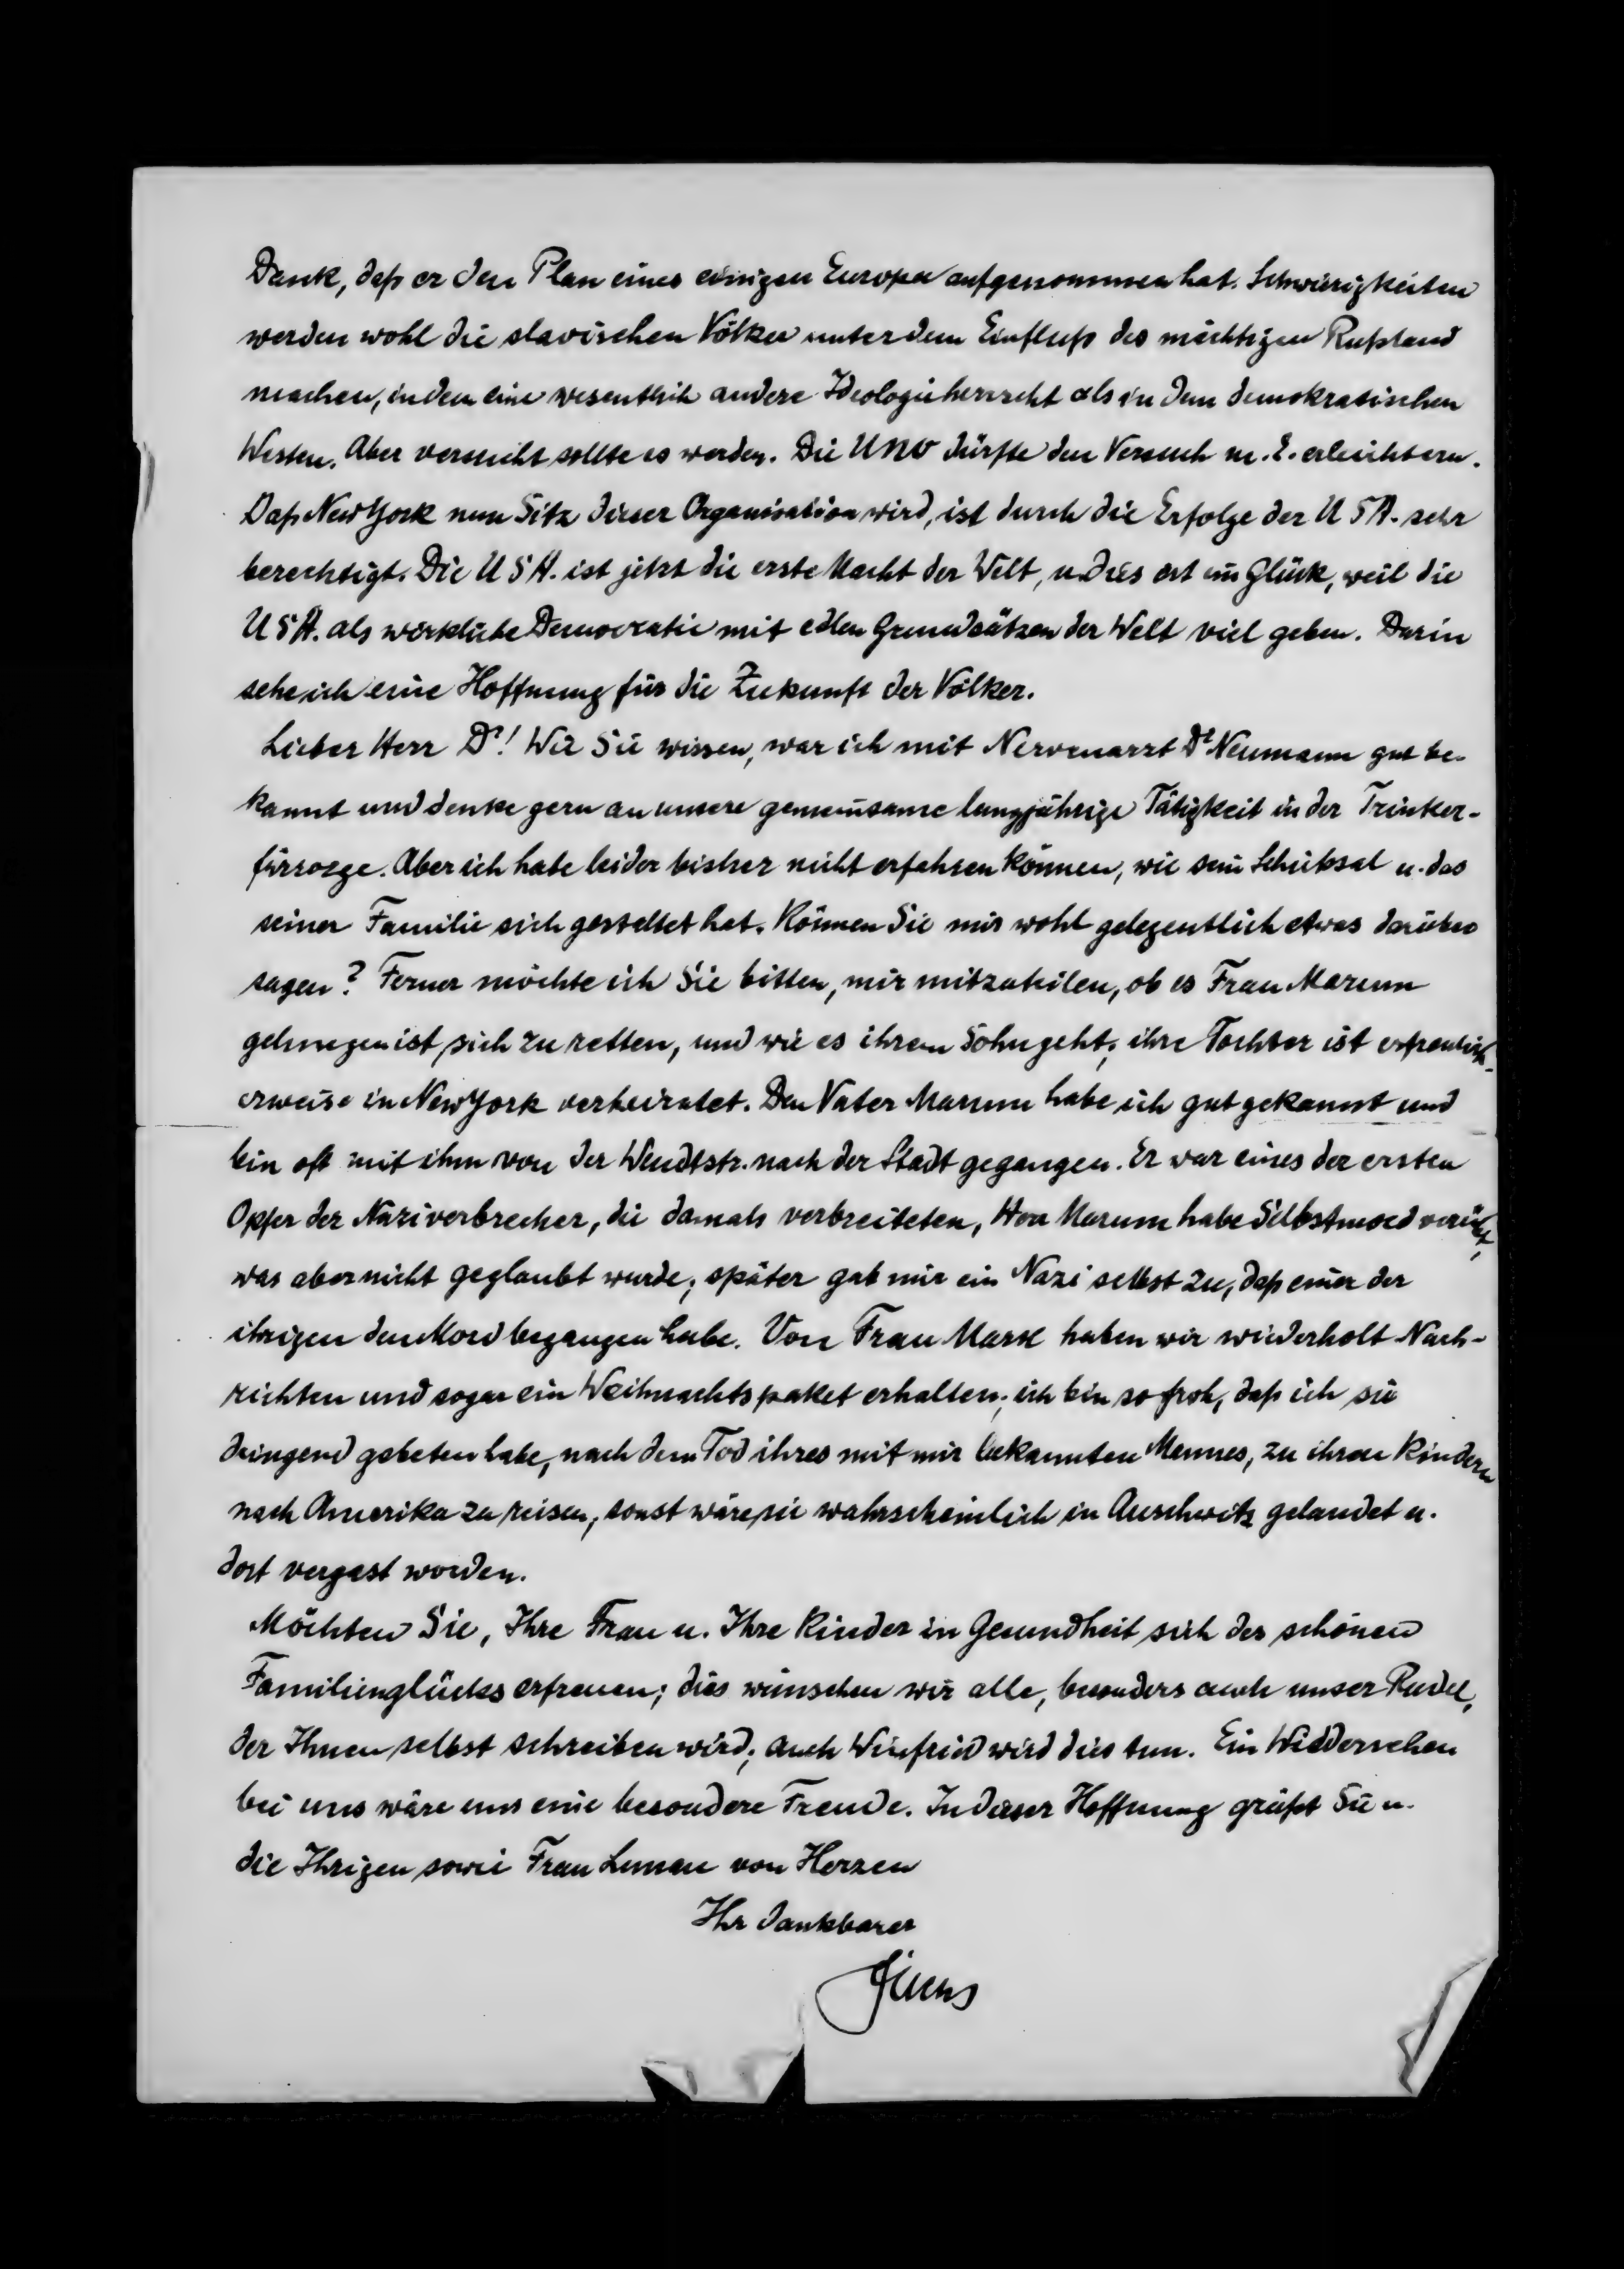 Dank, daß er den Plan eines einigen Europa aufgenommen hat. Schwierigkeiten
werden wohl die slavischen Völker unter dem Einfluß des mächtigen Rußland
machen, in dem eine wesentlich andere Ideologie herrscht als in dem demokratischen
Westen. Aber versucht sollte es werden. Die UNO dürfte den Versuch m. E. erleichtern.
Daß New York nun Sitz dieser Organisation wird, ist durch die Erfolge der USA. sehr
berechtigt. Die USA. ist jetzt die erste Macht der Welt, u. dies ist ein Glück, weil die
USA. als wirkliche Democratie mit edlen Grundsätzen der Welt viel geben. Darin
sehe ich eine Hoffnung für die Zukunft der Völker.
Lieber Herr Dr! Wie Sie wissen, war ich mit Nervenarzt Dr Neumann gut be-
kannt und denke gern an unsere gemeinsame langjährige Tätigkeit in der Trinker-
fürsorge. Aber ich habe leider bisher nicht erfahren können, wie sein Schicksal u. das
seiner Familie sich gestaltet hat. Können Sie mir wohl gelegentlich etwas darüber
sagen? Ferner möchte ich Sie bitten, mir mitzuteilen, ob es Frau Marum
gelungen ist, sich zu retten, und wie es ihrem Sohn geht; ihre Tochter ist erfreulich-
erweise in New York verheiratet. Den Vater Marum habe ich gut gekannt und
bin oft mit ihm von der Wendtstr. nach der Stadt gegangen. Er war eines der ersten
Opfer der Naziverbrecher, die damals verbreiteten, Herr Marum habe Selbstmord verübt,
was aber nicht geglaubt wurde; später gab mir ein Nazi selbst zu, daß einer der
ihrigen den Mord begangen habe. Von Frau Marx haben wir wiederholt Nach-
richten und sogar ein Weihnachtspaket erhalten; ich bin so froh, daß ich sie
dringend gebeten habe, nach dem Tod ihres mit mir bekannten Mannes, zu ihren Kindern
nach Amerika zu reisen, sonst wäre sie wahrscheinlich in Auschwitz gelandet u.
dort vergast worden.
Möchten Sie, Ihre Frau u. Ihre Kinder in Gesundheit sich des schönen
Familienglückes erfreuen; dies wünschen wir alle, besonders auch unser Rudel,
der Ihnen selbst schreiben wird; auch Winfried wird dies tun. Ein Wiedersehen
bei uns wäre uns eine besondere Freude. In dieser Hoffnung grüßt Sie u.
die Ihrigen sowie Frau von Herzen
Ihr dankbarer